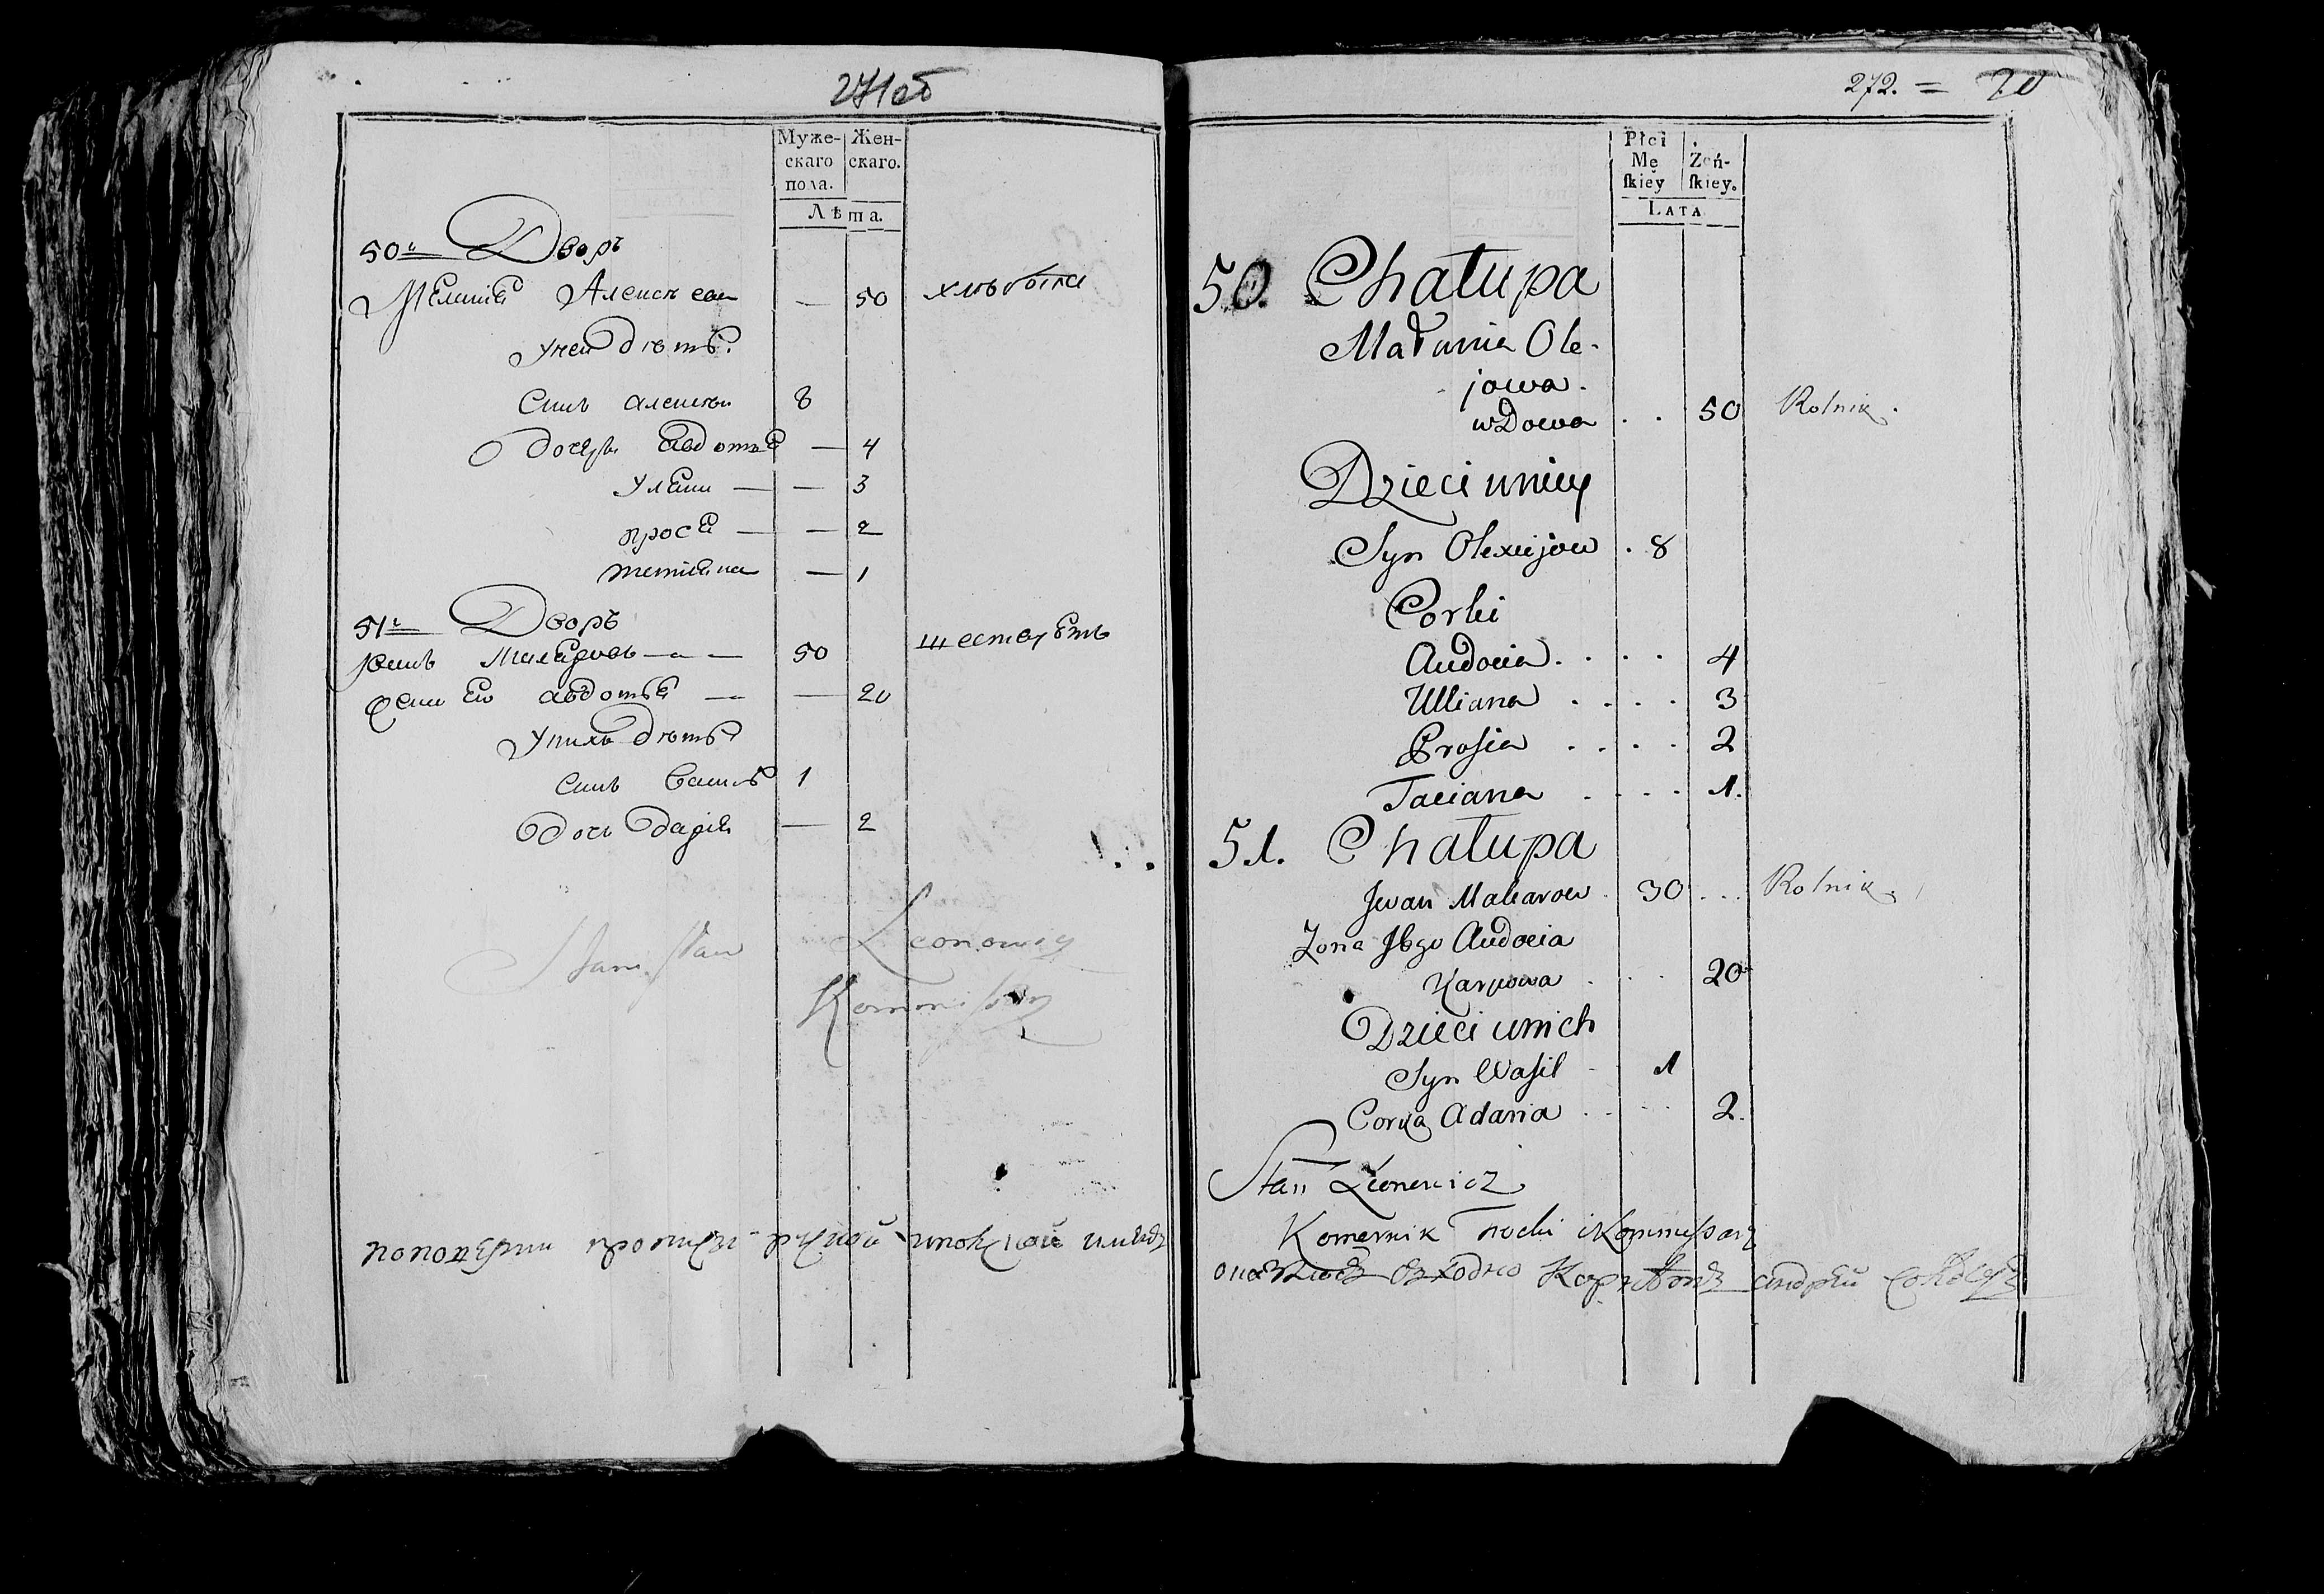 271об
Муже-
скаго
пола.
Жен-
скаго.
Лѣта.
50й Дворъ
Мелания Алексеева — 50
унеи дѣти
Синъ алексеи 8
дочери авдотья — 4
Улияна — — 3
прося — — 2
татияна — 1
51й Дворъ
Макаровъ — 50
жена его авдотья — — 20
Унихъ дѣти
Синъ василь 1
Дочь Дария — 2
Kommissarz
272. = 20
Płci
Mę
ſkiey
Żeń-
ſkiey.
LATA
50. Chałupa
Małania Ole-
jowa.
wdowa . . 50 Rolnik.
Dzieci uniey
Syn Olexiejow . 8
Corki
Audocia . . . . 4
Ulliana . . . . 3
Prosia . . . . 2
Taciana . . . . 1.
51. Chałupa
Jwan Makarow . 30 . . . Rolnik.
Zona Jego Audocia
Karpowa . . . 20
Dzieci unich
Syn Wasil 1
Corka Adaria . . . . 2.
Stan Leonowicz
Komernik Trocki i Kommissarz
андрей